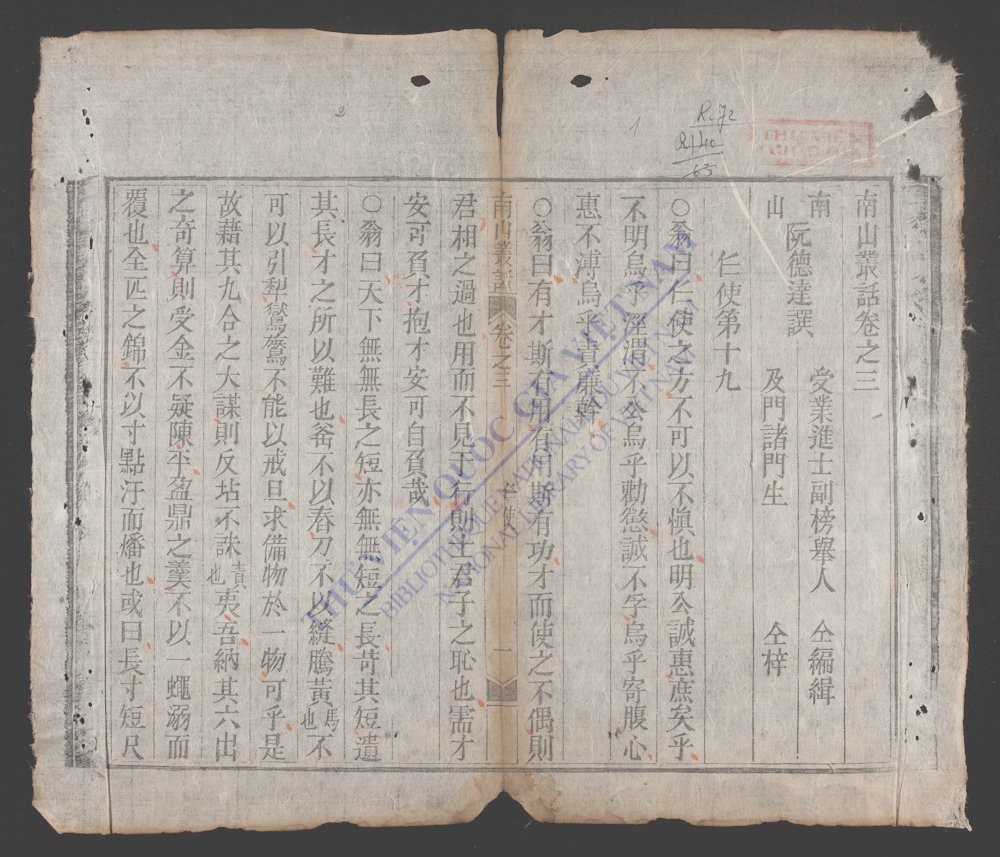 南山叢話卷之三
南 受業進士副榜舉人 仝編緝
阮德達譔
山 及門諸門生 仝梓
仁使第十九
○翁曰仁使之方不可以不慎也明公誠惠庶矣乎
不明烏乎涇渭不公烏乎勸懲誠不孚烏乎寄腹心
惠不溥烏乎責廉幹
○翁曰有才斯有用有用斯有功才而使之不偶則
南山叢話 卷之三 仁使 一
君相之過也用而不見于行則士君子之恥也需才
安可負才抱才安可自負哉
○翁曰天下無無長之短亦無無短之長苛其短遺
其長才之所以難也斧不以舂刀不以縫騰黃馬也不
可以引犁鸑鷟不能以戒旦求備物於一物可乎是
故藉其九合之大謀則反坫不誅責也夷吾納其六出
之奇算則受金不疑陳平盈鼎之羹不以一蠅溺而
覆也全匹之錦不以寸點汙而燔也或曰長寸短尺
THƯ VIỆN QUỐC GIA VIỆT NAM
BIBLIOTHEQUE NATIONALE DU VIETNAM
NATIONAL LIBRARY OF VIETNAM
THƯ VIỆN
QUỐC GIA
1
2